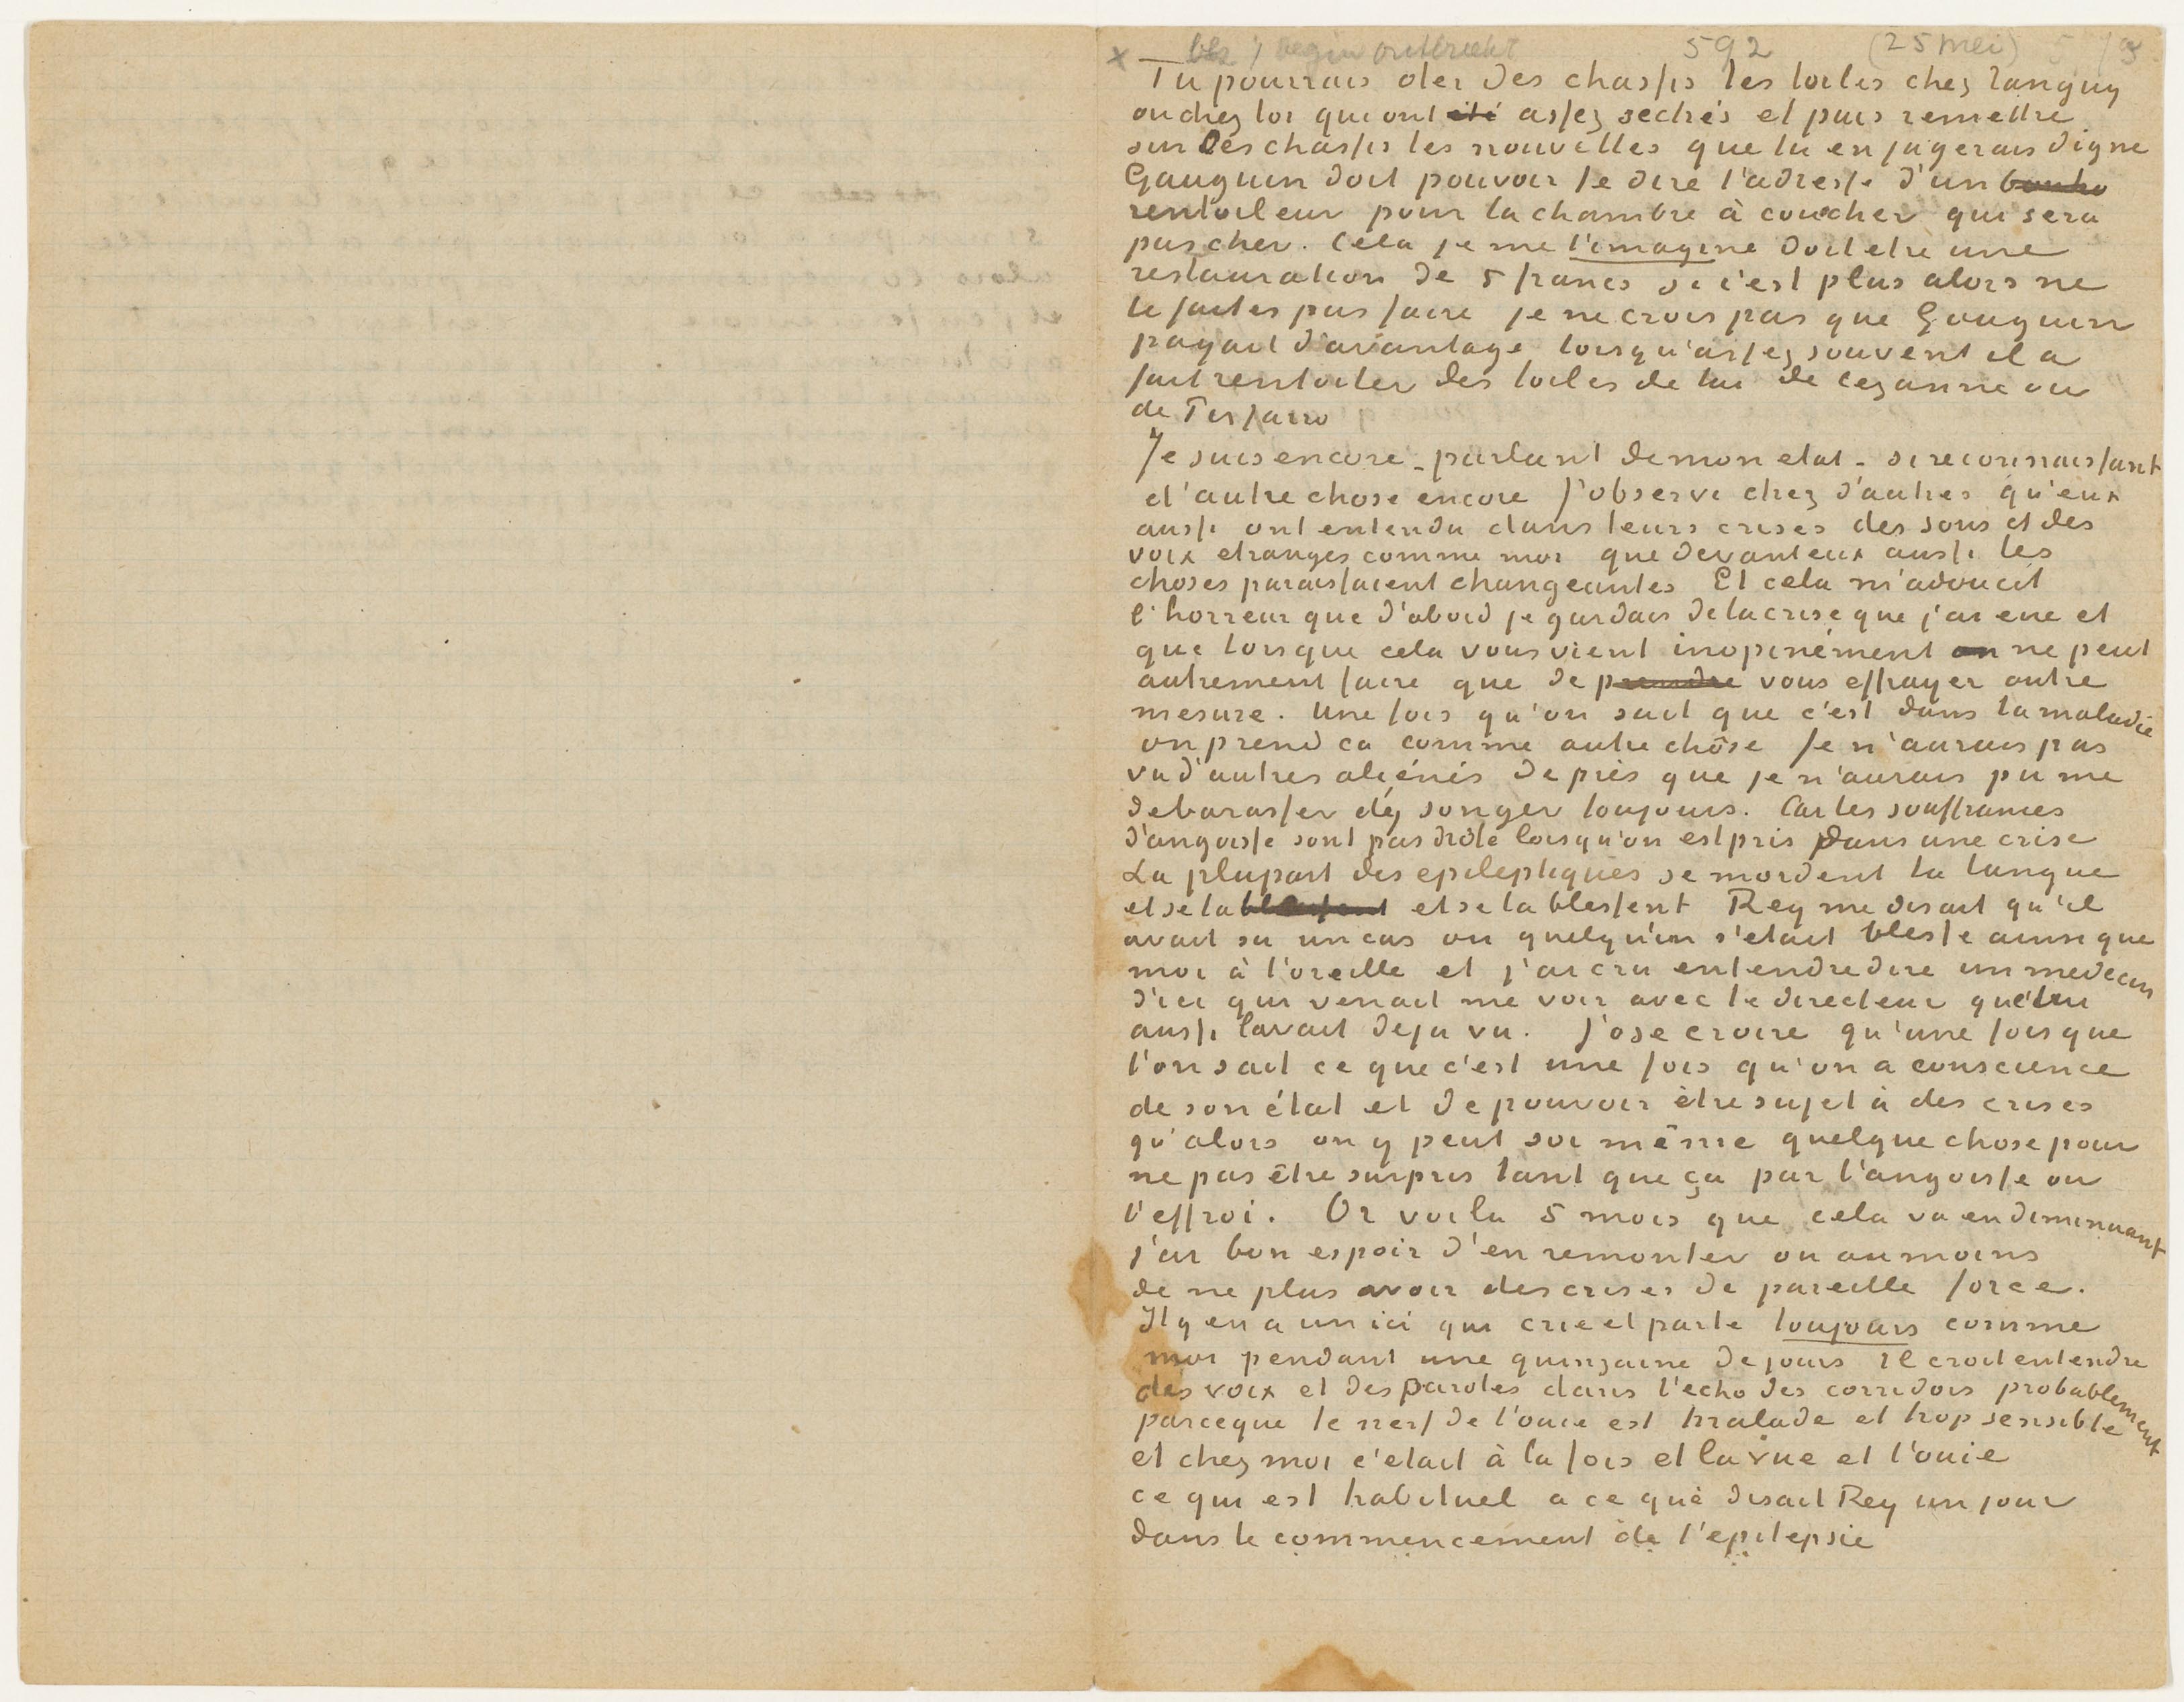 x begin ontbreekt 592 (25 mei)
Tu pourrais oter des chassis les toiles chez Tanguy
ou chez toi qui ont eté assez sechés et puis remettre
sur Des chassis les nouvelles que tu en jugerais digne
Gauguin doit pouvoir te dire l'adresse d'un
rentoileur pour la chambre à coucher qui sera
pas cher. Cela je me l'imagine doit etre une
restauration de 5 francs si c'est plus alors ne
le faites pas faire je ne crois pas que Gauguin
payait d'avantage lorsqu'assez souvent il a
fait rentoiler des toiles de lui de Cezanne ou
de Pissarro
Je suis encore - parlant de mon etat - si reconnaissant
d'autre chose encore J'observe chez d'autres qu'eux
aussi ont entendu dans leurs crises des sons et des
voix etranges comme moi que devant eux aussi les
choses paraissaient changeantes Et cela m'adoucit
l'horreur que d'abord je gardais de la crise que j'ai eue et
que lorsque cela vous vient inopinément on ne peut
autrement faire que de prendre vous effrayer outre
mesure. Une fois qu'on sait que c'est dans la maladie
on prend ca comme autre chose Je n'aurais pas
vu d'autres aliénés de près que je n'aurais pu me
debarasser d'y songer toujours. Car les souffrances
d'angoisse sont pas drôle lorsqu'on est pris dans une crise
La plupart des epileptiques se mordent la langue
et se la blessent et se la blessent Rey me disait qu'il
avait su un cas ou quelqu'un s'etait blesse ainsi que
moi à l'oreille et j'ai cru entendre dire un medecin
d'ici qui venait me voir avec le directeur que lui
aussi l'avait deja vu. J'ose croire qu'une fois que
l'on sait ce que c'est une fois qu'on a conscience
de son état et de pouvoir être sujet à des crises
qu'alors on y peut soi même quelque chose pour
ne pas être surpris tant que ça par l'angoisse ou
l'effroi. Or voila 5 mois que cela va en diminuant
j'ai bon espoir d'en remonter ou au moins
de ne plus avoir des crises de pareille force.
Il y en a un ici qui crie et parle toujours comme
moi pendant une quinzaine de jours il croit entendre
des voix et des paroles dans l'echo des corridors probablement
parceque le nerf de l'ouie est malade et trop sensible
et chez moi c'etait à la fois et la vue et l'ouie
ce qui est habituel a ce que disait Rey un jour
dans le commencement de l'epilepsie